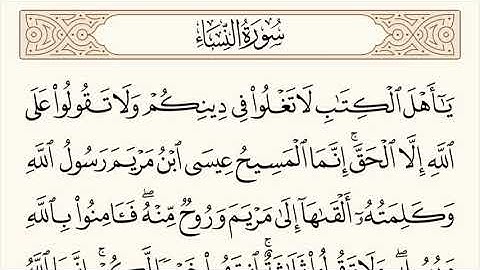 سُورَةُ النِّسَاءِ
يَـٰٓأَهْلَ ٱلْكِتَـٰبِ لَا تَغْلُوا۟ فِى دِينِكُمْ وَلَا تَقُولُوا۟ عَلَى
ٱللَّهِ إِلَّا ٱلْحَقَّ ۚ إِنَّمَا ٱلْمَسِيحُ عِيسَى ٱبْنُ مَرْيَمَ رَسُولُ ٱللَّهِ
وَكَلِمَتُهُۥٓ أَلْقَىٰهَآ إِلَىٰ مَرْيَمَ وَرُوحٌ مِّنْهُ ۖ فَـَٔامِنُوا۟ بِٱللَّهِ
وَرُسُلِهِۦ ۖ وَلَا تَقُولُوا۟ ثَلَـٰثَةٌ ۚ ٱنتَهُوا۟ خَيْرًا لَّكُمْ ۚ إِنَّمَا ٱللَّهُ